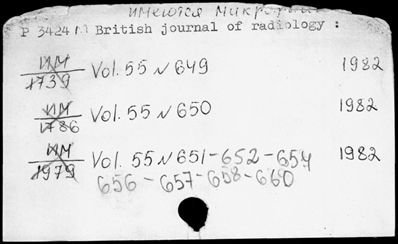 имеются микроф
P 3424 British journal of radiology :
ИМ
1739 Vol. 55 N 649 1982
ИМ
1786 Vol. 55 N 650 1982
ИМ
1979 Vol. 55 N 651-652-654 1982
656-657-658-660